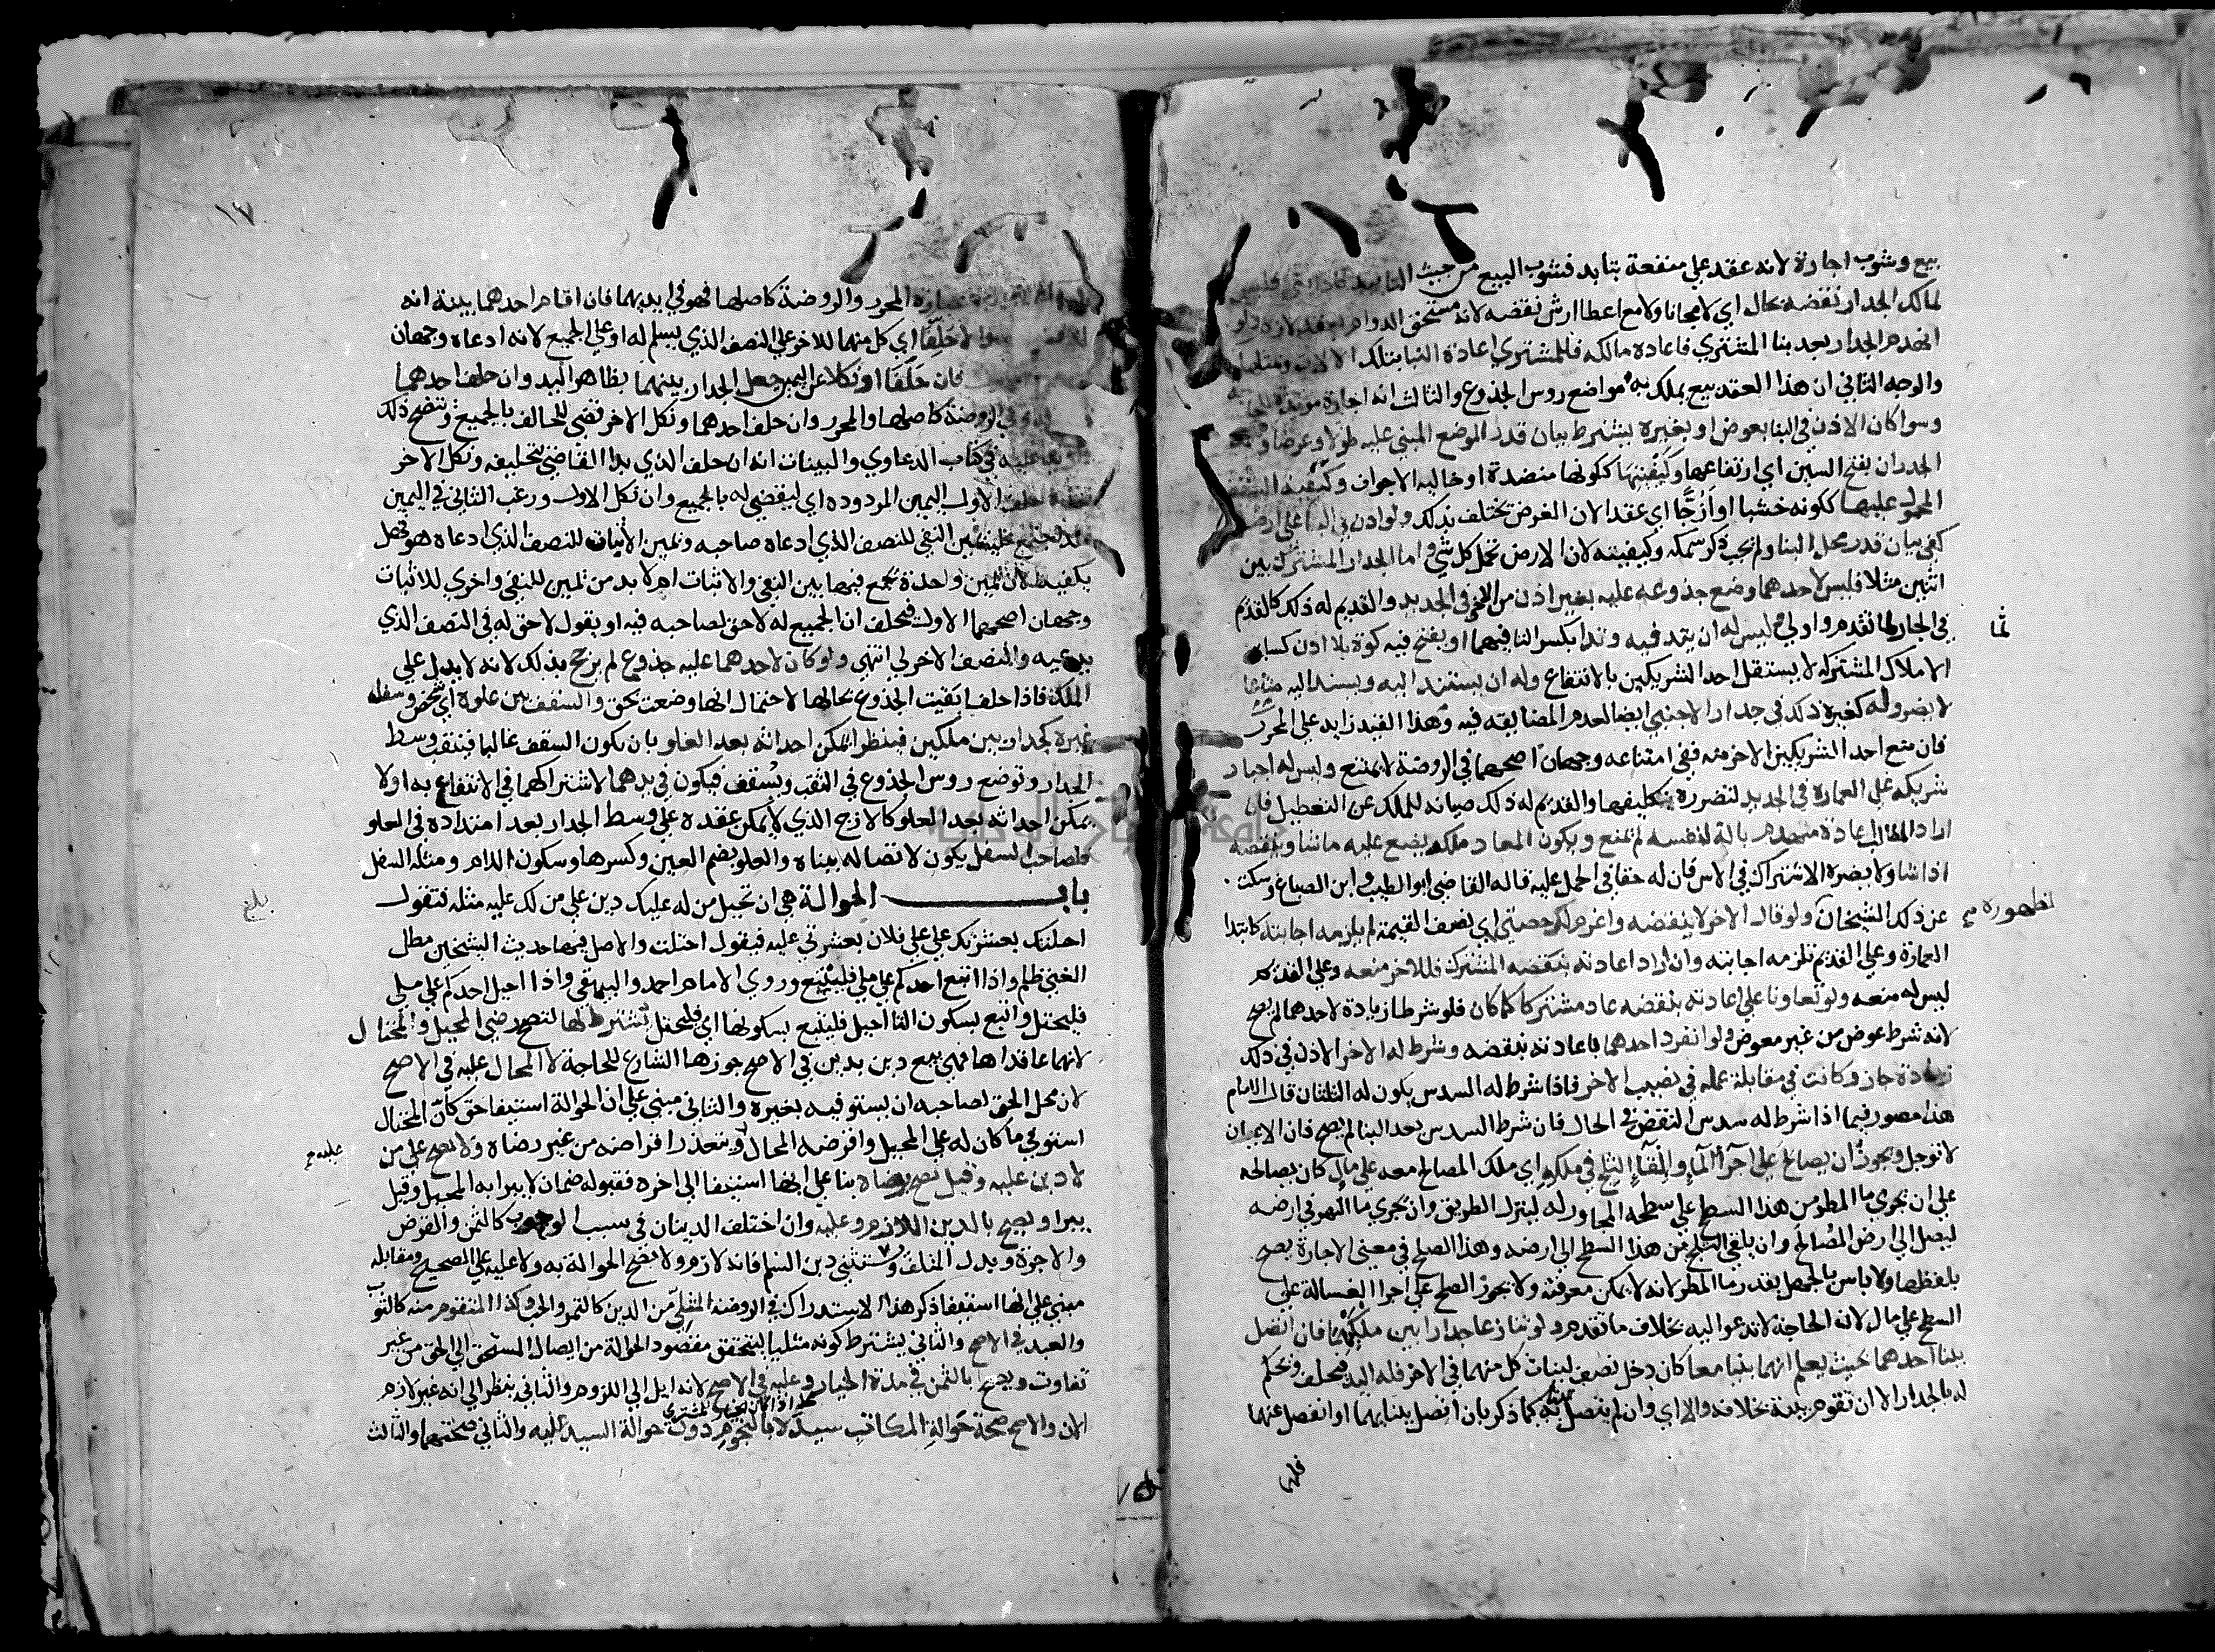 بيع وشوب اجارة لانه عقد علي منفعة بتابد فشوب البيع من حيث التابيد فاذا بني فليس
لمالك الجدار نقضه بحال اي لا مجانا ولا مع اعطا ارش نقضه لانه مستحق الدوام بعقد لازم ولو
انهدم الجدار بعد بنا المشتري فاعاده مالكه فللمشتري اعادة البنا بتلك الالات وبمثلها
والوجه الثاني ان هذا العقد بيع يملك به مواضع روس الجذوع والثالث انه اجارة موبدة
وسوا كان الاذن في البنا بعوض او بغيره يشترط بيان قدر الموضع المبني عليه طولا وعرضا وسمك
الجدران بفتح السين اي ارتفاعها وكيفيتها ككونها منضدة او خالية الاجواف وكيفية السقف
المحمول عليها ككونه خشبا او ازجا اي عقدا لان الغرض يختلف بذلك ولو اذن في البنا علي ارضه
كفي بيان قدر محل البنا ولم يجب ذكر سمكه وكيفيته لان الارض تحمل كل شي واما الجدار المشترك بين
اثنين مثلا فليس لاحدهما وضع جذوعه عليه بغير اذن من الاخر في الجديد والقديم له ذلك كالقديم
في الجار لما تقدم واولي ليس له ان يتد فيه وتدا بكسر التا فيهما او يفتح فيه كوة بلا اذن كساير
ثما
الاملاك المشتركه لا يستقل احد الشريكين بالانتفاع وله ان يستند اليه ويسند اليه متاعا
لا يضر وله كغيره ذلك في جدار الاجنبي ايضا لعدم المضايقه فيه وهذا القيد زايد علي المحرر
فان منع احد الشريكين الاخر منه ففي امتناعه وجهان اصحهما في الروضة لا يمتنع وليس له اجبار
شريكه علي العمارة في الجديد لتضرره بتكليفها والقديم له ذلك صيانه للملك عن التعطيل فان
اراد الطالب اعادة منهدم بالة لنفسه لم يمنع ويكون المعاد ملكه يضع عليه ما شا وينقضه
اذا شا ولا يضره الاشتراك في الاس فان له حقا في الحمل عليه قاله القاضي ابو الطيب وابن الصباغ وسكت
عن ذلك الشيخان ولو قال الاخر لا ينقضه واغرم لك حصتي اي نصف القيمة لم يلزمه اجابته كابتدا
لظهوره صح
العمارة وعلي القديم تلزمه اجابته وان اراد اعادته بنقضه المشترك فللاخر منعه وعلي القديم
ليس له منعه ولو تعاونا علي اعادته بنقضه عاد مشتركا كما كان فلو شرطا زيادة لاحدهما لم يصح
لانه شرط عوض من غير معوض ولو انفرد احدهما باعادته بنقضه وشرط له الاخر الاذن في ذلك
زيادة جاز وكانت في مقابلة عمله في نصيب الاخر فاذا شرط له السدس يكون له الثلثان قال الامام
هذا مصور فيما اذا شرط له سدس النقض في الحال فان شرط السدس بعد البنا لم يصح فان الاعيان
لا توجل ويجوز ان يصالح علي اجرا الما والقا الثلج في ملكه اي ملك المصالح معه علي مال كان يصالحه
علي ان يجري ما المطر من هذا السطح علي سطحه المجاور له لينزل الطريق وان يجري ما النهر في ارضه
ليصل الي ارض المصالح وان يلقي الثلج من هذا السطح الي ارضه وهذا الصلح في معني الاجارة يصح
بلفظها ولا باس بالجهل بقدر ما المطر لانه لا يمكن معرفته ولا يجوز الصلح علي اجرا الغسالة علي
السطح علي مال لان الحاجة لا تدعوا اليه بخلاف ما تقدم ولو تنازعا جدارا بين ملكيهما فان اتصل
ببنا احدهما بحيث يعلم انهما بنيا معا كان دخل نصف لبنات كل منهما في الاخر فله اليد فيحلف ويحكم
له بالجدار الا ان تقوم بينة بخلافه والا اي وان لم يتصل به كما ذكر بان اتصل ببنايهما او انفصل عنهما
فلهما
١٧
المحرر والروضة كاصلها فهو في ايديهما فان اقام احدهما بينة انه
والا حلفا اي كل منهما للاخر علي النصف الذي يسلم له او علي الجميع لانه ادعاه وجهان
فان حلفا او نكلا عن اليمين جعل الجدار بينهما بظاهر اليد وان حلف احدهما
وفي الروضة كاصلها والمحرر وان حلف احدهما ونكل الاخر قضي للحالف بالجميع وتتضح ذلك
في كتاب الدعاوي والبينات انه ان حلف الذي بدا القاضي بتحليفه ونكل الاخر
حلف الاول اليمين المردوده اي ليقضي له بالجميع وان نكل الاول ورغب الثاني في اليمين
فقد اجتمع عليه يمين النفي للنصف الذي ادعاه صاحبه ويمين الاثبات للنصف الذي ادعاه هو فهل
يكفيه الان يمين واحدة يجمع فيهما بين النفي والاثبات ام لا بد من يمين للنفي واخري للاثبات
وجهان اصحهما الاول فيحلف ان الجميع له لا حق لصاحبه فيه او يقول لا حق له في النصف الذي
يدعيه والنصف الاخر لي انتهي ولو كان لاحدهما عليه جذوع لم يرجح بذلك لانه لا يدل علي
الملك فاذا حلفا بقيت الجذوع بحالها لاحتمال انها وضعت بحق والسقف بين علوه اي شخص وسفل
غيره كجدار بين ملكين فينظر ايمكن احداثه بعد العلو بان يكون السقف عاليا فيثقب وسط
الجدار وتوضع روس الجذوع في الثقب ويسقف فيكون في يدهما لاشتراكهما في الانتفاع به او لا
يمكن احداثه بعد العلو كالازج الذي لا يمكن عقده علي وسط الجدار بعد امتداده في العلو
فلصاحب السفل يكون لاتصاله ببناه والعلو بضم العين وكسرها وسكون اللام ومثله السفل
باب الحوالة هي ان تحيل من له عليك دين علي من لك عليه مثله فتقول
بلغ
احلتك بعشرتك علي علي فلان بعشرتي عليه فيقول احتلت والاصل فيها حديث الشيخين مطل
الغني ظلم واذا اتبع احدكم علي ملي فليتبع وروي الامام احمد والبيهقي واذا احيل احدكم علي ملي
فليحتل واتبع بسكون التا احيل فليتبع بسكونها اي فليحتل يشترط لها لتصح رضي المحيل والمحتال
لانهما عاقداها فهي بيع دين بدين في الاصح جوزها الشارع للحاجة لا المحال عليه في الاصح
لان محل الحق لصاحبه ان يستوفيه بغيره والثاني مبني علي ان الحوالة استيفا حق كان المحتال
استوفي ما كان له علي المحيل واقرضه المحال ويتعذر اقراضه من غير رضاه ولا تصح علي من
عليه صح
لا دين عليه وقيل تصح برضاه بنا علي انها استيفا الي اخره فقبوله ضمان لا يبرا به المحيل وقيل
يبرا وتصح بالدين اللازم وعليه وان اختلف الدينان في سبب الوجوب كالثمن والقرض
والاجرة وبدل المتلف ويستثني دين السلم فانه لازم ولا تصح الحوالة به ولا عليه علي الصحيح ومقابله
مبني علي انها استيفا ذكر هذا الاستدراك في الروضة المثلي من الدين كالثمر والحب وكذا المتقوم منه كالثوب
والعبد في الاصح والثاني يشترط كونه مثليا ليتحقق مقصود الحوالة من ايصال المستحق الي الحق من غير
تفاوت وتصح بالثمن في مدة الخيار وعليه في الاصح لانه ايل الي اللزوم والثاني ينظر الي انه غير لازم
الان والاصح صحة حوالة المكاتب سيده بالنجوم دون حوالة السيد عليه والثاني صحتهما والثالث